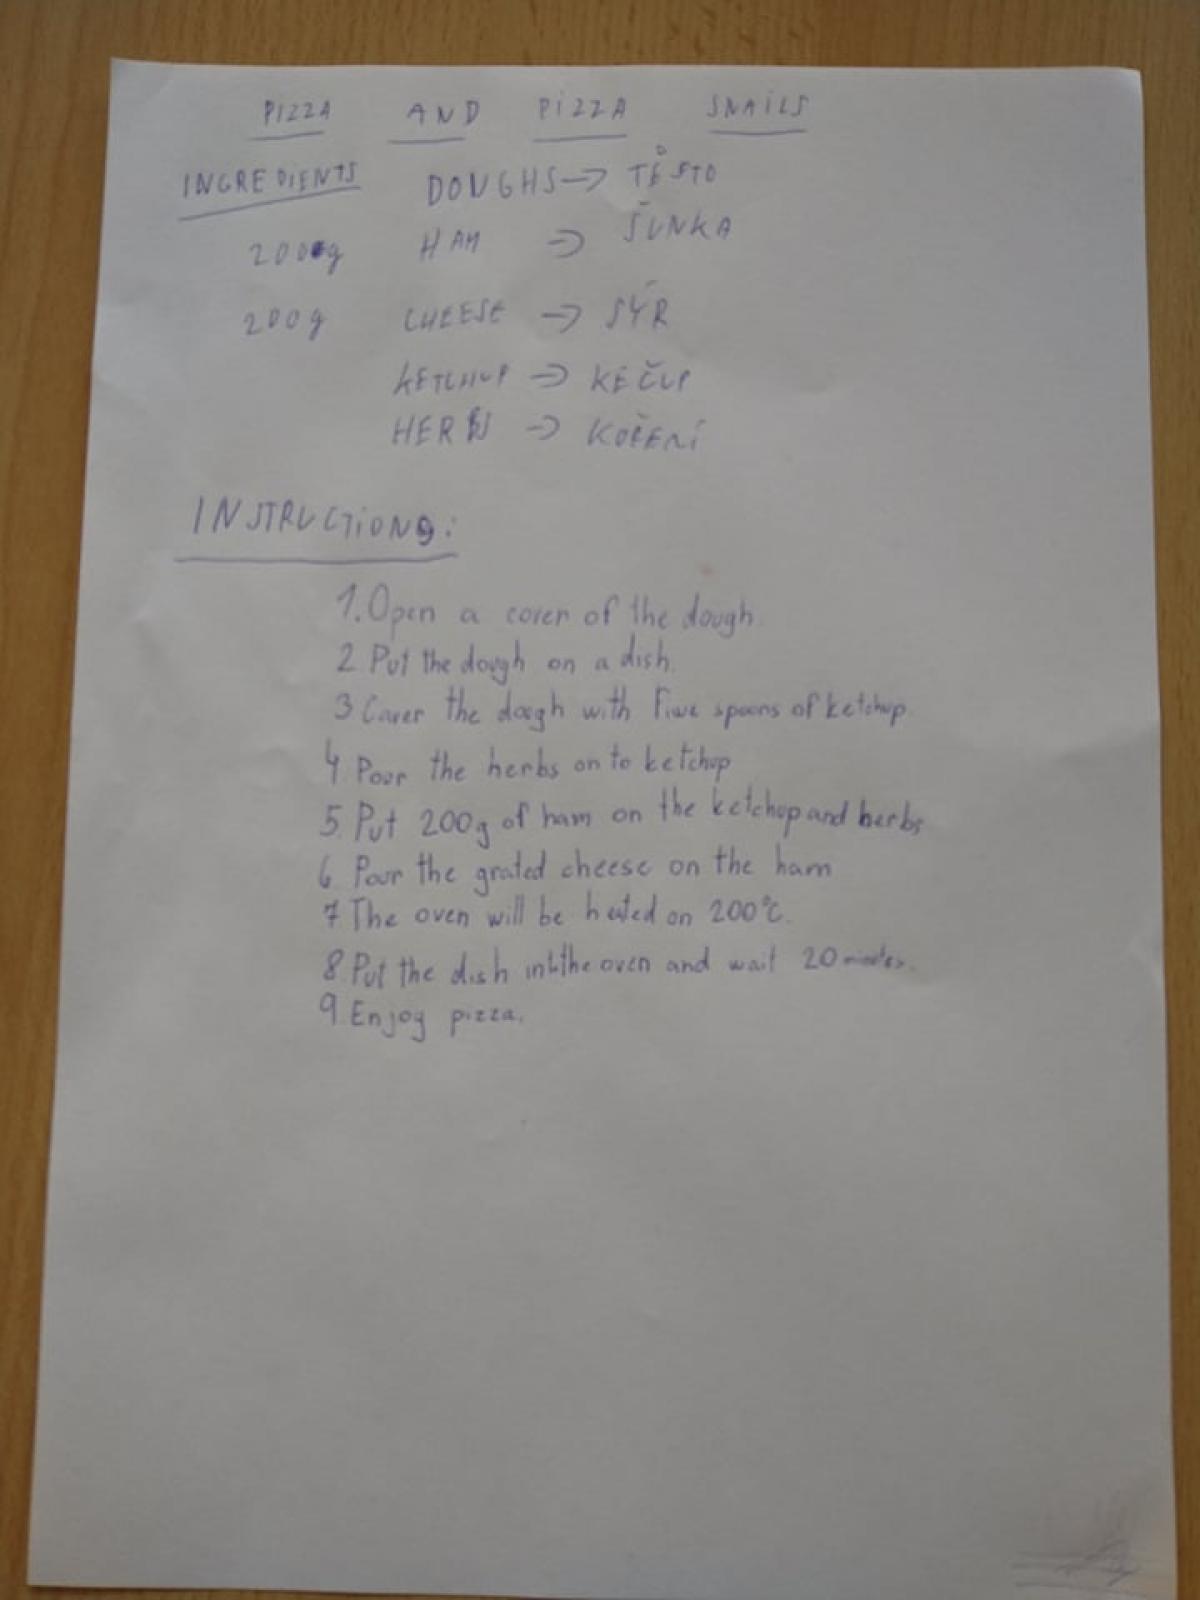 PIZZA AND PIZZA SNAILS
INGREDIENTS DOUGHS → TĚSTO
200g HAM → ŠUNKA
200g CHEESE → SÝR
KETCHUP → KEČUP
HERBS → KOŘENÍ
INSTRUCTIONS:
1. Open a cover of the dough.
2 Put the dough on a dish.
3 Cover the dough with Five spoons of ketchup.
4 Pour the herbs on to ketchup
5. Put 200g of ham on the ketchup and herbs
6. Pour the grated cheese on the ham
7 The oven will be heated on 200°C.
8. Put the dish into the oven and wait 20 minutes.
9. Enjoy pizza.